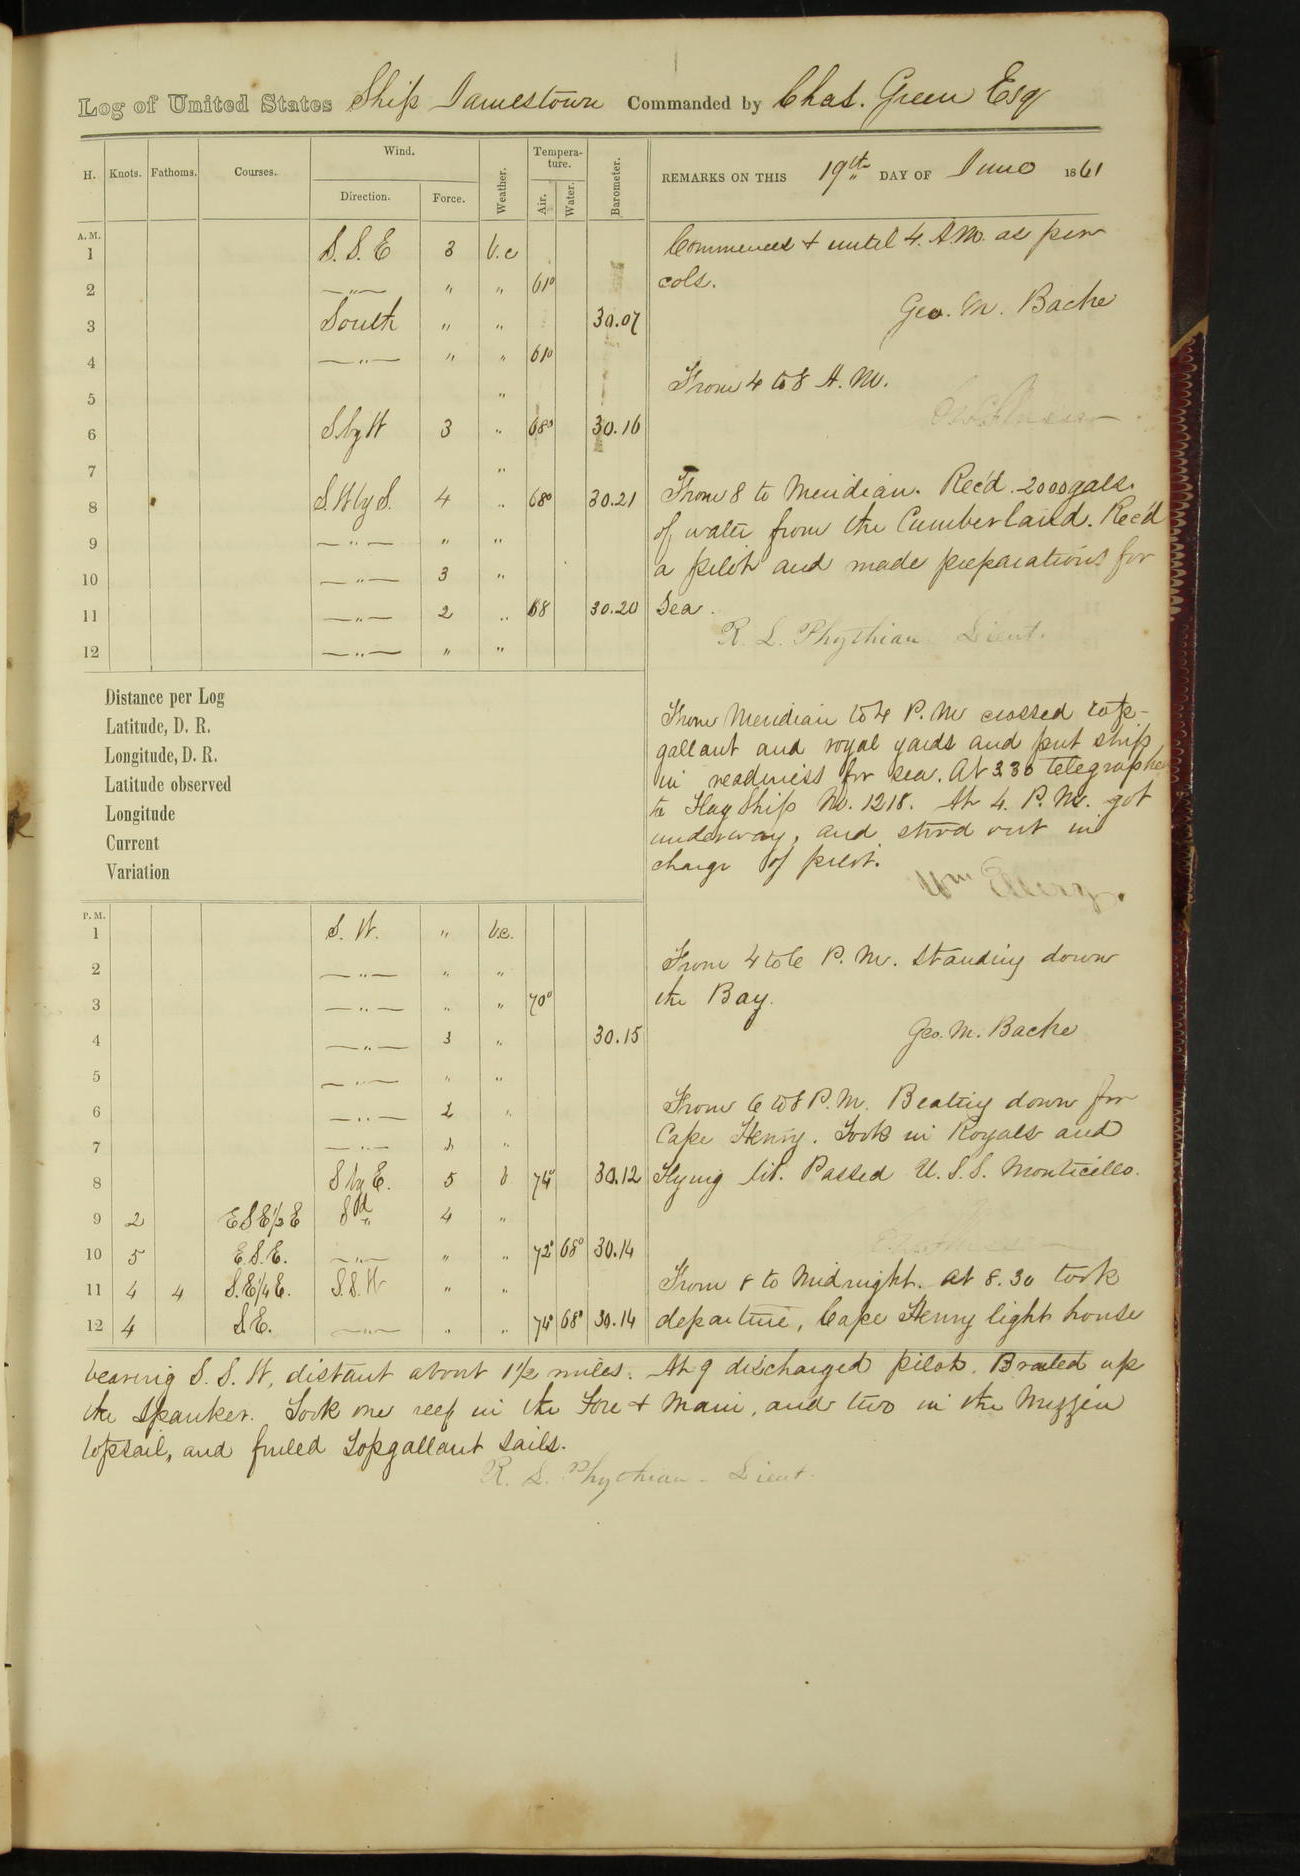 Log of United States Ship Jamestown Commanded by Chas. Green Esq
H. Knots. Fathoms. Courses. Wind. Direction. Force. Weather. Temperature. Air. Water. Barometer.
REMARKS ON THIS 19th DAY OF June 1861
A. M.
1 S. S. E 3 b.c
2 —"— " " 61°
3 South " " 30.07
4 —"— " " 61°
5 "
6 S by W 3 " 68° 30.16
7 "
8 S. W by S. 4 " 68° 30.21
9 —"— " "
10 —"— 3 "
11 —"— 2 " 68 30.20
12 —"— " "
Commences & until 4. A.M. as per
cols.
Geo. M. Bache
From 4 to 8 A. M.
From 8 to Meridian. Rec'd. 2000 gals.
of water from the Cumberland. Rec'd
a pilot and made preparations for
Sea.
R. L. Phythian Lieut.
Distance per Log
Latitude, D. R.
Longitude, D. R.
Latitude observed
Longitude
Current
Variation
From Meridian to 4 P. M crossed top-
gallant and royal yards and put ship
in readiness for sea. At 3.30 telegraphed
to Flag Ship No. 1218. At 4. P. M. got
underway, and stood out in
charge of pilot.
Wm
P. M.
1 S. W. " b.c.
2 —"— " "
3 —"— " " 70°
4 —"— 3 " 30.15
5 —"— " "
6 —"— 2 "
7 —"— "
8 S by E. 5 b 74° 30.12
9 2 E S E ½ E Sd " 4 "
10 5 E. S. E. —"— " " 72° 68° 30.14
11 4 4 S. E ¼ E. S. S. W " "
12 4 S. E. —"— " " 74° 68° 30.14
From 4 to 6 P. M. Standing down
the Bay.
Geo. M. Bache
From 6 to 8 P. M. Beating down for
Cape Henry. Took in Royals and
Flying Jib. Passed U. S. S. Monticello.
From 8 to Midnight. At 8.30 took
departure, Cape Henry light house
bearing S. S. W, distant about 1½ miles. At 9 discharged pilot. Brailed up
the Spanker. Took one reef in the Fore & Main, and two in the Mizzen
topsail, and furled Topgallant Sails.
R. L. Phythian - Lieut.